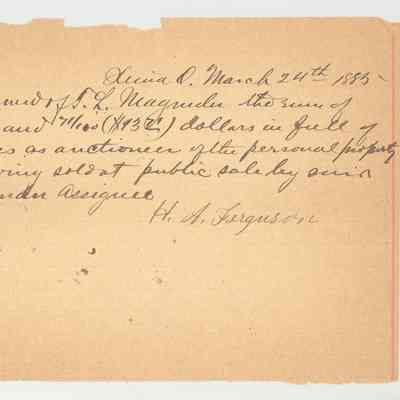 Xenia O. March 24th 1885
of T. L. Magruder the sum of
and 71/100 ($93 71) dollars in full of
es as auctioneer of the personal property
sold at public sale by
Assignee
H. A. Ferguson